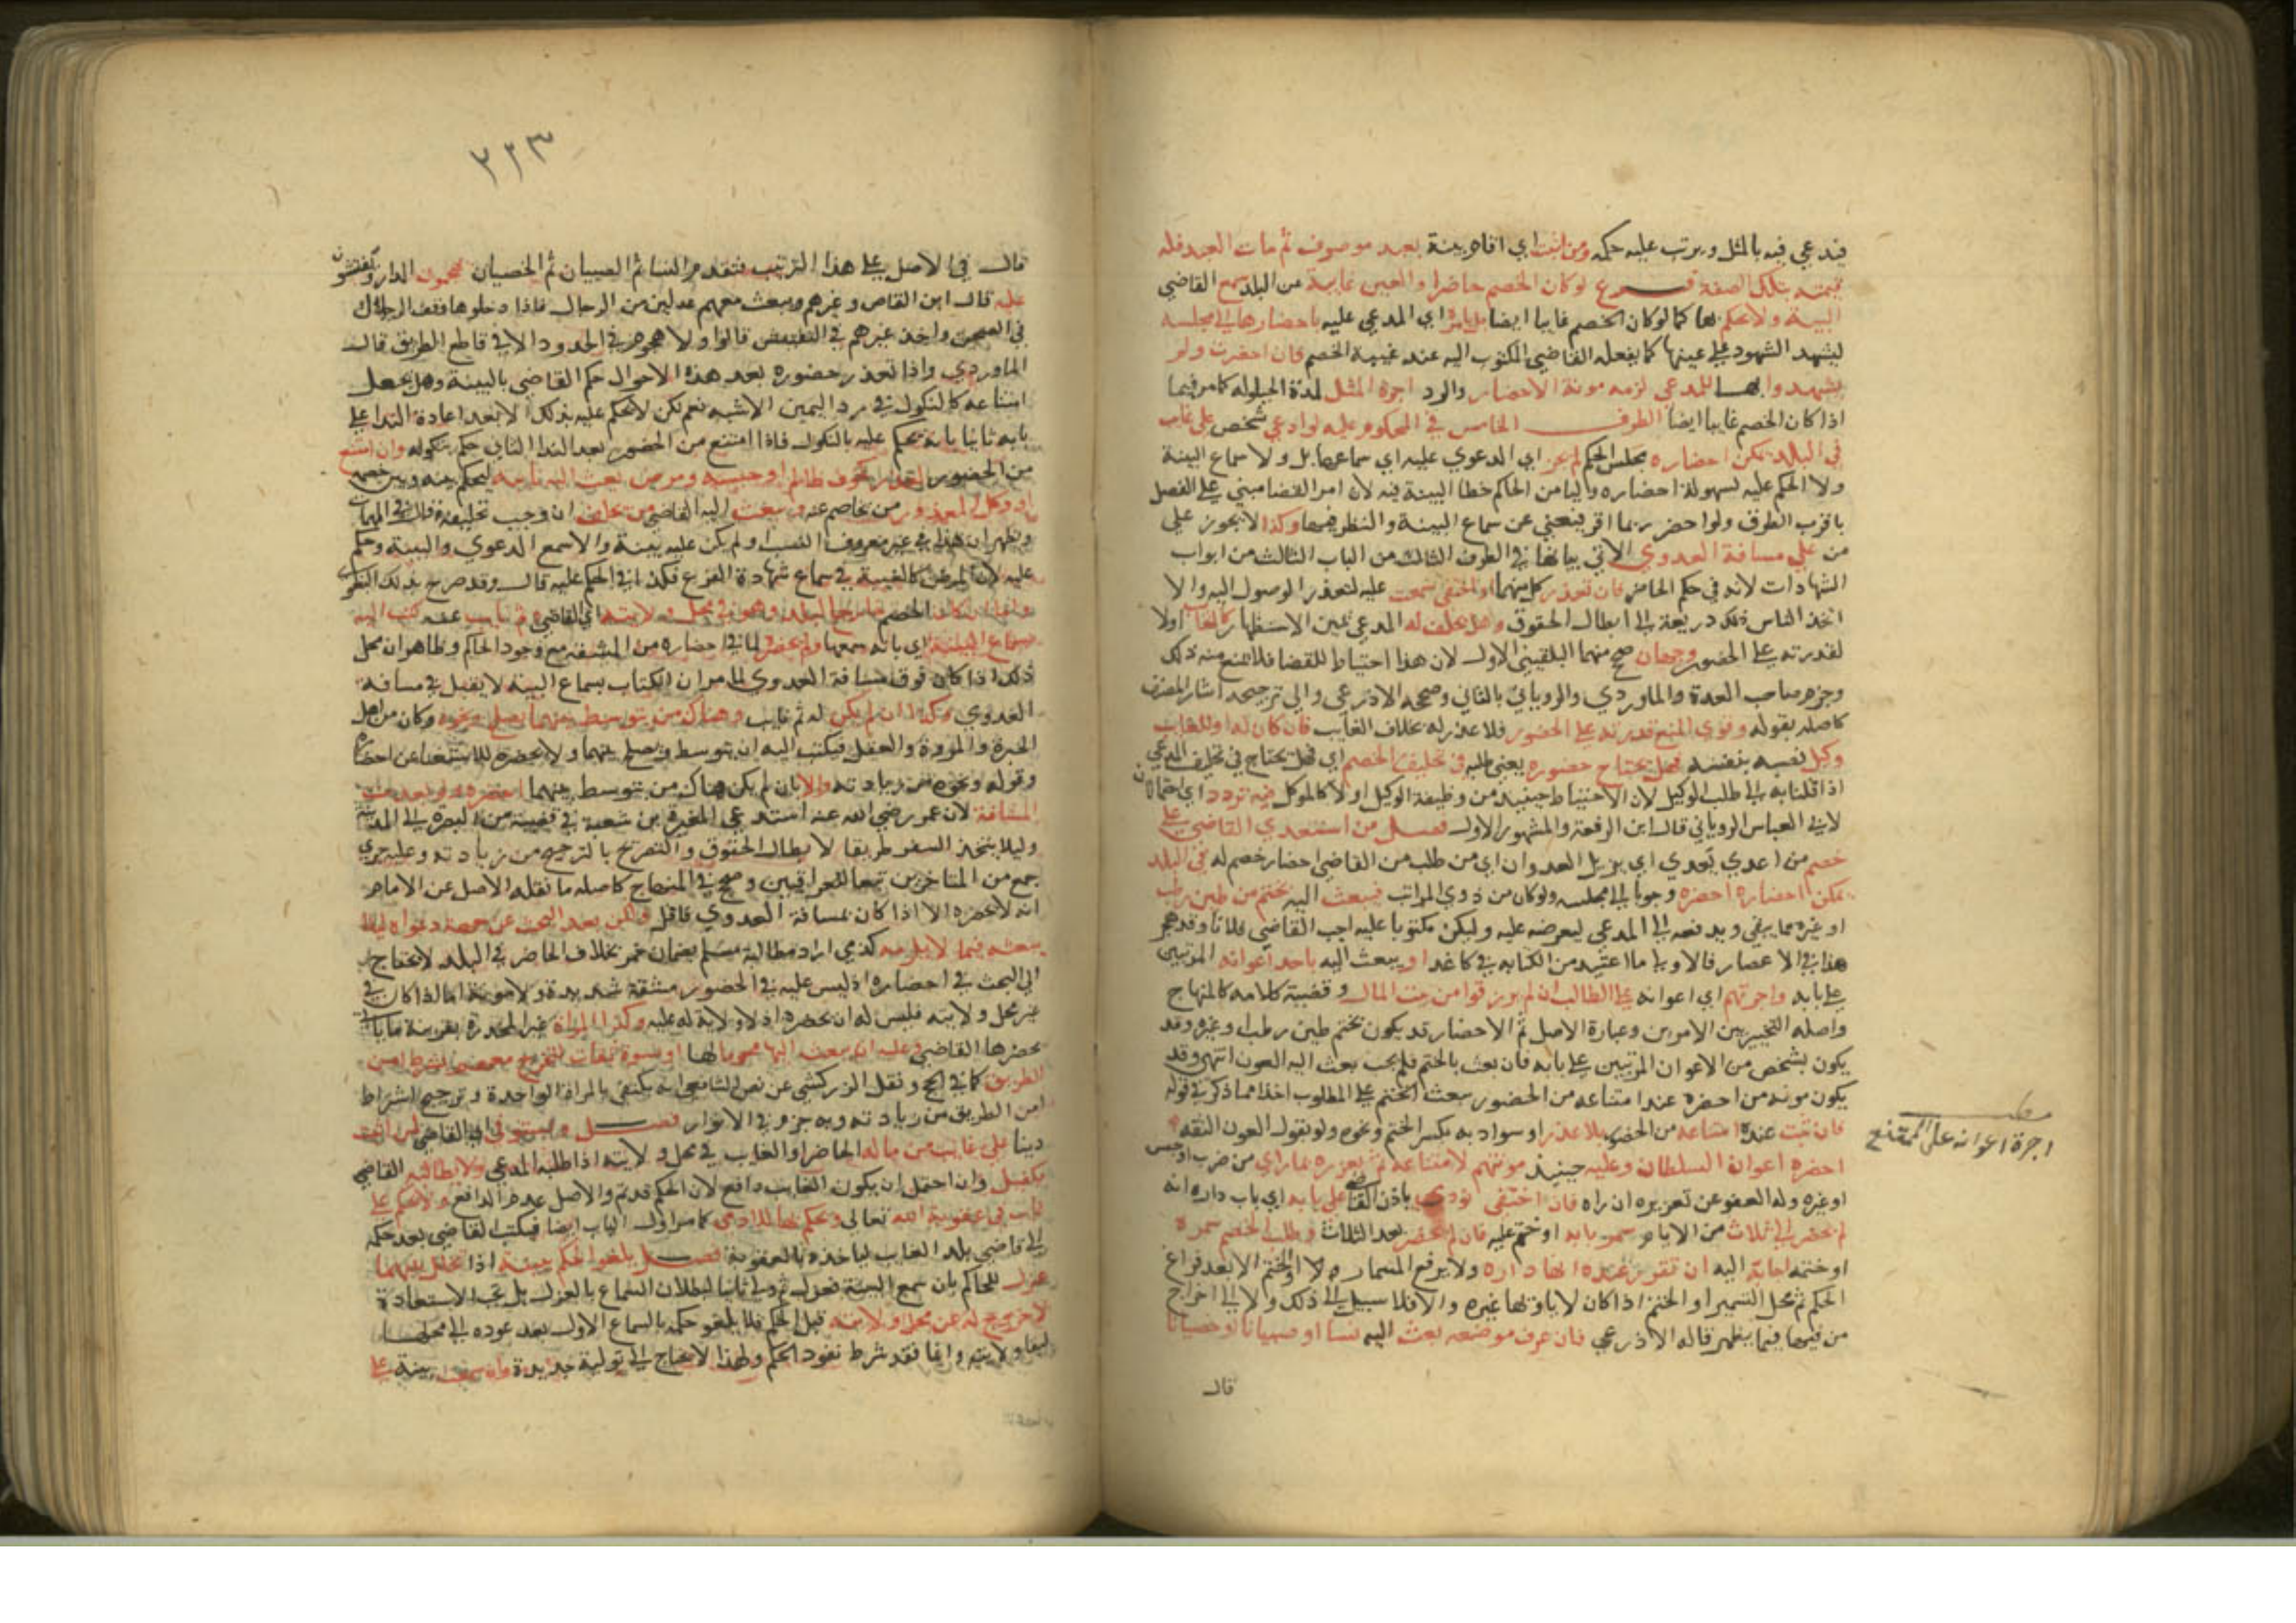 فيدعي فيه بالمثل ويرتب عليه حكمه ومن اثبت اي اقام بينة بعبد موصوف ثم مات العبد فله
قيمته بتلك الصفة فرع لو كان الخصم حاضرا والعين غايبة من البلد سمع القاضي
البينة ولا يحكم بها كما لو كان الخصم غايبا ايضا بل يامر اي المدعي عليه باحضارها الي مجلسه
ليشهد الشهود علي عينها كما يفعله القاضي المكتوب اليه عند غيبة الخصم فان احضرت ولم
يشهدوا بها للمدعي لزمه مونة الاحضار والرد اجرة المثل لمدة الحيلولة كما مر فيما
اذا كان الخصم غايبا ايضا الطرف الخامس في المحكوم عليه لو ادعي شخص علي غايب
في البلد يمكن احضاره مجلس الحكم لم يجز اي الدعوي عليه اي سماعها بل ولا سماع البينة
ولا الحكم عليه لسهولة احضاره وليامن الحاكم خطا البينة فيه لان امر القضا مبني علي الفصل
باقرب الطرق ولو احضر ربما اقر فيغني عن سماع البينة والنظر فيها وكذا لا يجوز علي
من علي مسافة العدوي الاتي بيانها في الطرف الثالث من الباب الثالث من ابواب
الشهادات لانه في حكم الحاضر فان تعذر كل منهما او اختفي سمعت عليه لتعذر الوصول اليه والا
اتخذ الناس ذلك ذريعة الي ابطال الحقوق وهل يحلف له المدعي يمين الاستظهار كالغايب اولا
لقدرته علي الحضور وجهان صحح منهما البلقيني الاول لان هذا احتياط للقضا فلا يمنع منه ذلك
وجزم صاحب العدة والماوردي والروياني بالثاني وصححه الاذرعي والي ترجيحه اشار المصنف
كاصله بقوله وقوي المنع قدرته علي الحضور فلا عذر له بخلاف الغايب فان كان له او للغايب
وكيل نصبه بنفسه فهل يحتاج حضوره يعني طلبه في تحليف الخصم اي فهل يحتاج في تحليف المدعي
اذا قلنا به الي طلب الوكيل لان الاحتياط حينيذ من وظيفة الوكيل اولا كالموكل فيه تردد اي احتمالان
لابي العباس الروياني قال ابن الرفعة والمشهور الاول فصل من استعدي القاضي علي
خصم من اعدي يعدي اي يزيل العدوان اي من طلب من القاضي احضار خصم له في البلد
يمكن احضاره احضره وجوبا الي مجلسه ولو كان من ذوي المراتب فيبعث اليه بختم من طين رطب
او غيره مما يبقي ويدفعه الي المدعي ليعرضه عليه وليكن مكتوبا عليه اجب القاضي فلانا وقد هجر
هذا في الاعصار فالاولي ما اعتيد من الكتابة في كاغد او يبعث اليه باحد اعوانه المرتبين
علي بابه واجرتهم اي اعوانه علي الطالب ان لم يرزقوا من بيت المال وقضية كلامه كالمنهاج
واصله التخيير بين الامرين وعبارة الاصل ثم الاحضار قد يكون بختم طين رطب او غيره وقد
يكون بشخص من الاعوان المرتبين علي بابه فان بعث بالختم فلم يجب بعث اليه العون انتهي وقد
يكون مونة من احضره عند امتناعه من الحضور ببعث الختم علي المطلوب اخذا مما ذكر في قوله
فان ثبت عنده امتناعه من الحضور بلا عذر او سوء ادبه بكسر الختم ونحوه ولو بقول العون الثقة
احضره اعوان السلطان وعليه حينيذ مونتهم لامتناعه ثم يعزره بما راي من ضرب او حبس
او غيره وله العفو عن تعزيره ان راه فان اختفي نودي باذن القاضي علي بابه اي باب داره انه
لم يحضر الي ثلاث من الايام سمر بابه او ختم عليه فان لم يحضر بعد الثلاث وطلب الخصم سمره
او ختمه اجابه اليه ان تقرر عنده انها داره ولا يرفع المسمار ولا الختم الا بعد فراغ
الحكم ثم محل التسمير او الختم اذا كان لا ياويها غيره والا فلا سبيل الي ذلك ولا الي اخراج
من فيها فيما يظهر قاله الاذرعي فان عرف موضعه بعث اليه نسا او صبيانا او خصيانا
قال
مطلب
اجرة اعوانه علي الممتنع
٢٢٣
قال في الاصل علي هذا الترتيب فتقدم النسا ثم الصبيان ثم الخصيان يهجمون الدار ويفتشون
عليه قال ابن القاص وغيره ويبعث معهم عدلين من الرجال فاذا دخلوها وقف الرجلان
في الصحن واخذ غيرهم في التفتيش قالوا ولا هجوم في الحدود الا في قاطع الطريق قال
الماوردي واذا تعذر حضوره بعد هذه الاحوال حكم القاضي بالبينة وهل يجعل
امتناعه كالنكول في رد اليمين الاشبه نعم لكن لا يحكم عليه بذلك الا بعد اعادة الندا علي
بابه ثانيا بانه يحكم عليه بالنكول فاذا امتنع من الحضور بعد الندا الثاني حكم بنكوله وان امتنع
من الحضور لعذر كخوف ظالم او حبسه ومرض بعث اليه نايبه ليحكم بينه وبين خصمه
او وكل المعذور من يخاصم عنه ويبعث اليه القاضي من يحلفه ان وجب تحليفه قال في المهمات
ويظهر ان هذا في غير معروف النسب او لم يكن عليه بينة والا سمع الدعوي والبينة وحكم
عليه لان المرض كالغيبة في سماع شهادة الفرع فكذا في الحكم عليه قال وقد صرح بذلك البغوي
واما ان كان الخصم خارج البلد وهو في محل ولايته اي القاضي وثم نايب عنه كتب اليه
بسماع البينة اي بانه سمعها ولم يحضره لما في احضاره من المشقة مع وجود الحاكم وظاهر ان محل
ذلك اذا كان فوق مسافة العدوي لما مر ان الكتاب بسماع البينة لا يقبل في مسافة
العدوي وكذا ان لم يكن له ثم نايب وهناك من يتوسط بينهما يصلح ونحوه وكان من اهل
الخبرة والمروة والعقل فيكتب اليه ان يتوسط ويصلح بينهما ولا يحضره للاستغنا عن احضاره
وقوله ونحوه من زيادته والا بان لم يكن هناك من يتوسط بينهما احضره ولو بعدت
المسافة لان عمر رضي الله عنه استدعي المغيرة بن شعبة في قضية من البصرة الي المدينة
وليلا يتخذ السفر طريقا لابطال الحقوق والتصريح بالترجيح من زيادته وعليه جري
جمع من المتاخرين تبعا للعراقيين وصحح في المنهاج كاصله ما نقله الاصل عن الامام
انه لا يحضره الا اذا كان بمسافة العدوي فاقل ولكن بعد البحث عن صحة دعواه ليلا
يبعثه فيما لا يلزمه كذمي اراد مطالبة مسلم بضمان خمر بخلاف الحاضر في البلد لا يحتاج
الي البحث في احضاره اذ ليس عليه في الحضور مشقة شديدة ولا مونة اما اذا كان في
غير محل ولايته فليس له ان يحضره اذ لا ولاية له عليه وكذا المراة غير المخدرة بقرينة ما ياتي
يحضرها القاضي وعليه ان يبعث اليها محرما لها او نسوة ثقات لتخرج معهم بشرط امن
الطريق كما في الحج ونقل الزركشي عن نص الشافعي انه يكتفي بالمراة الواحدة وترجيح اشتراط
امن الطريق من زيادته وبه جزم في الانوار فصل ويستوفي القاضي لمن اثبت
دينا علي غايب من ماله الحاضر او الغايب في محل ولايته اذا طلبه المدعي ولا يطالبه القاضي
بكفيل وان احتمل ان يكون للغايب دافع لان الحكم قد تم والاصل عدم الدافع ولا يحكم علي
غايب في عقوبة الله تعالي ويحكم بها للادمي كما مر اول الباب ايضا فيكتب القاضي بعد حكمه
الي قاضي بلد الغايب لياخذه بالعقوبة فصل يلغو الحكم ببينة اذا تخلل بينهما
عزل للحاكم بان سمع البينة فعزل ثم ولي ثانيا لبطلان السماع بالعزل بل تجب الاستعادة
لا خروج له عن محل ولايته قبل الحكم فلا يلغو حكمه بالسماع الاول بعد عوده الي محلها
لبقا ولايته وانما فقد شرط نفوذ الحكم ولهذا لا يحتاج الي تولية جديدة وان سمعت بينة علي